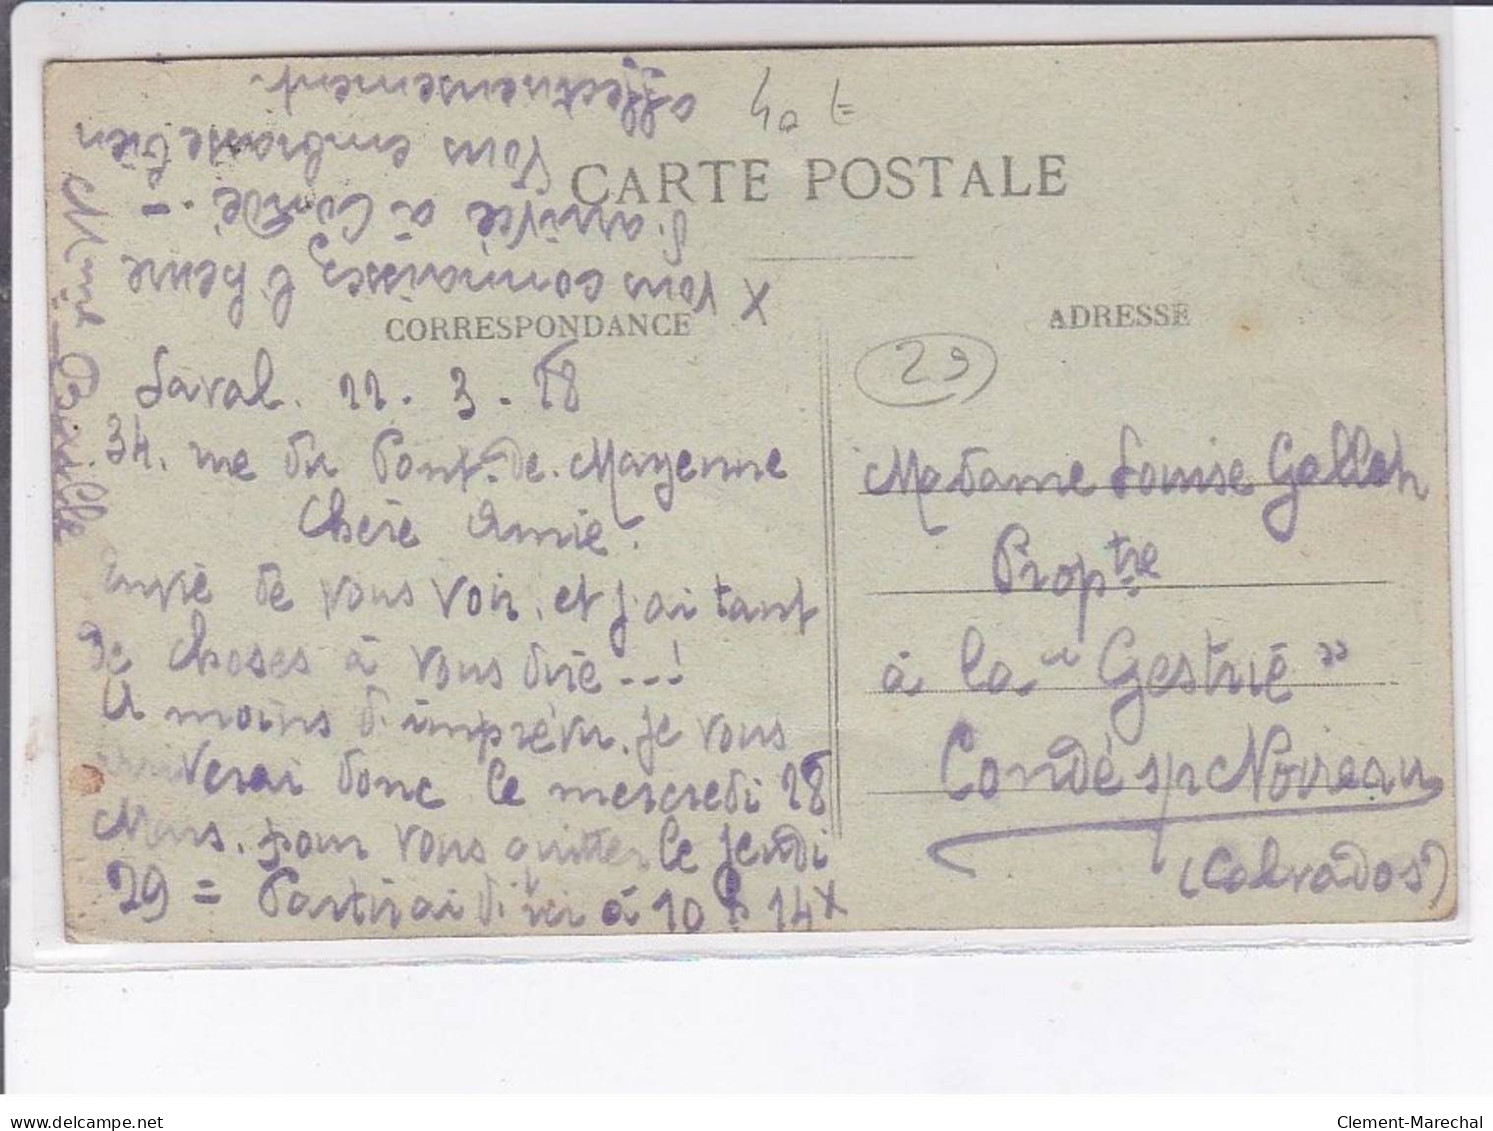 40 F
CARTE POSTALE
CORRESPONDANCE
ADRESSE
29
Laval. 22. 3. 28
34, rue du Pont-de-Mayenne
Chère Amie.
Envie de vous voir, et j'ai tant
de choses à vous dire---!
A moins d'imprévu, je vous
arriverai donc le mercredi 28
Mars, pour vous quitter le jeudi
29 = Partirai d'ici à 10 h 14 x
x Vous connaissez l'heure
d'arrivée à Condé. -
Vous embrasse bien
affectueusement.
Mme
Madame Louise
Proptre
à la "Gestrie"
Condé s/r Noireau
(Calvados)
delcampe.net
Clement-Marechal